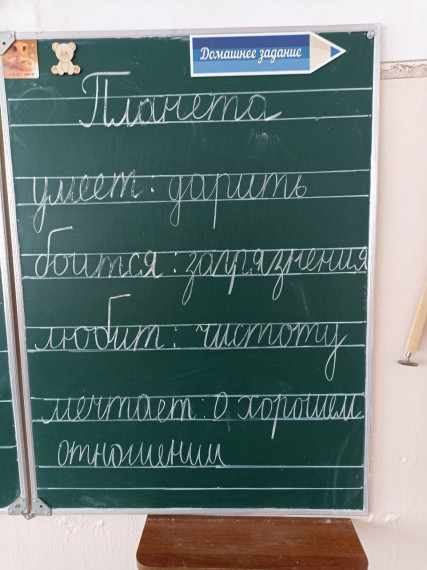 Домашнее задание
Планета
умеет: дарить
боится: загрязнения
любит: чистоту
мечтает: о хорошем
отношении